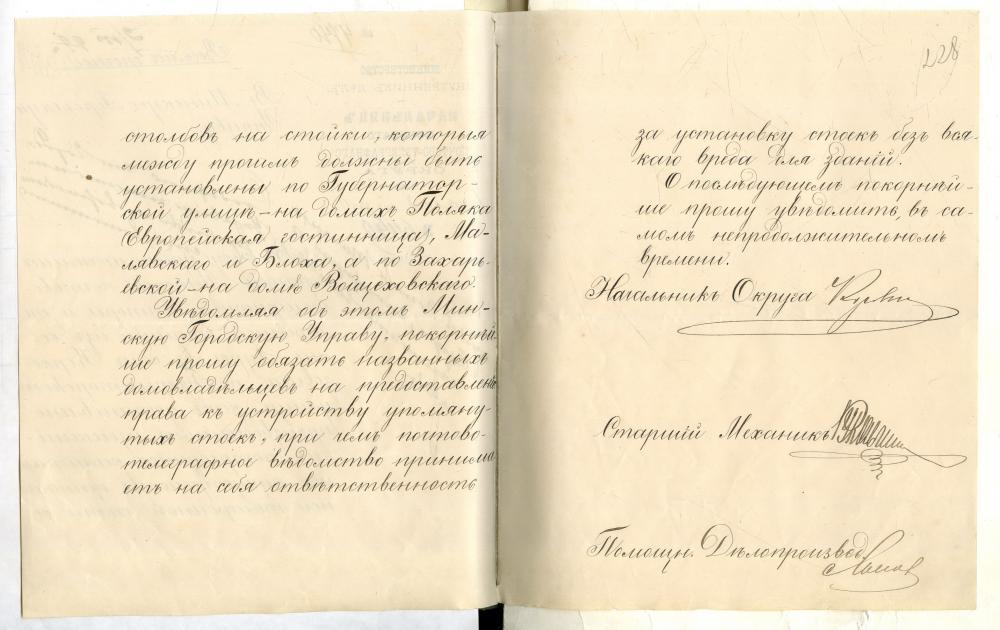 столбовъ на стойки, которыя
между прочимъ должны быть
установлены по Губернатор-
ской улицѣ – на домахъ Поляка
(Европейская гостинница), Ма-
лявскаго и Блоха, а по Захарь-
евской – на домѣ Войцеховскаго.
Увѣдомляя объ этомъ Мин-
скую Городскую Управу, покорнѣй-
ше прошу обязать названныхъ
домовладѣльцевъ на предоставленіе
права къ устройству упомяну-
тыхъ стоекъ, при чемъ почтово-
телеграфное вѣдомство принима
етъ на себя отвѣтственность
228
за установку стоекъ безъ вся-
каго вреда для зданій.
О послѣдующемъ покорнѣй-
ше прошу увѣдомить, въ са-
момъ непродолжительномъ
времени.
Начальникъ Округа
Старшій Механикъ
Помощн. Дѣлопроизвод